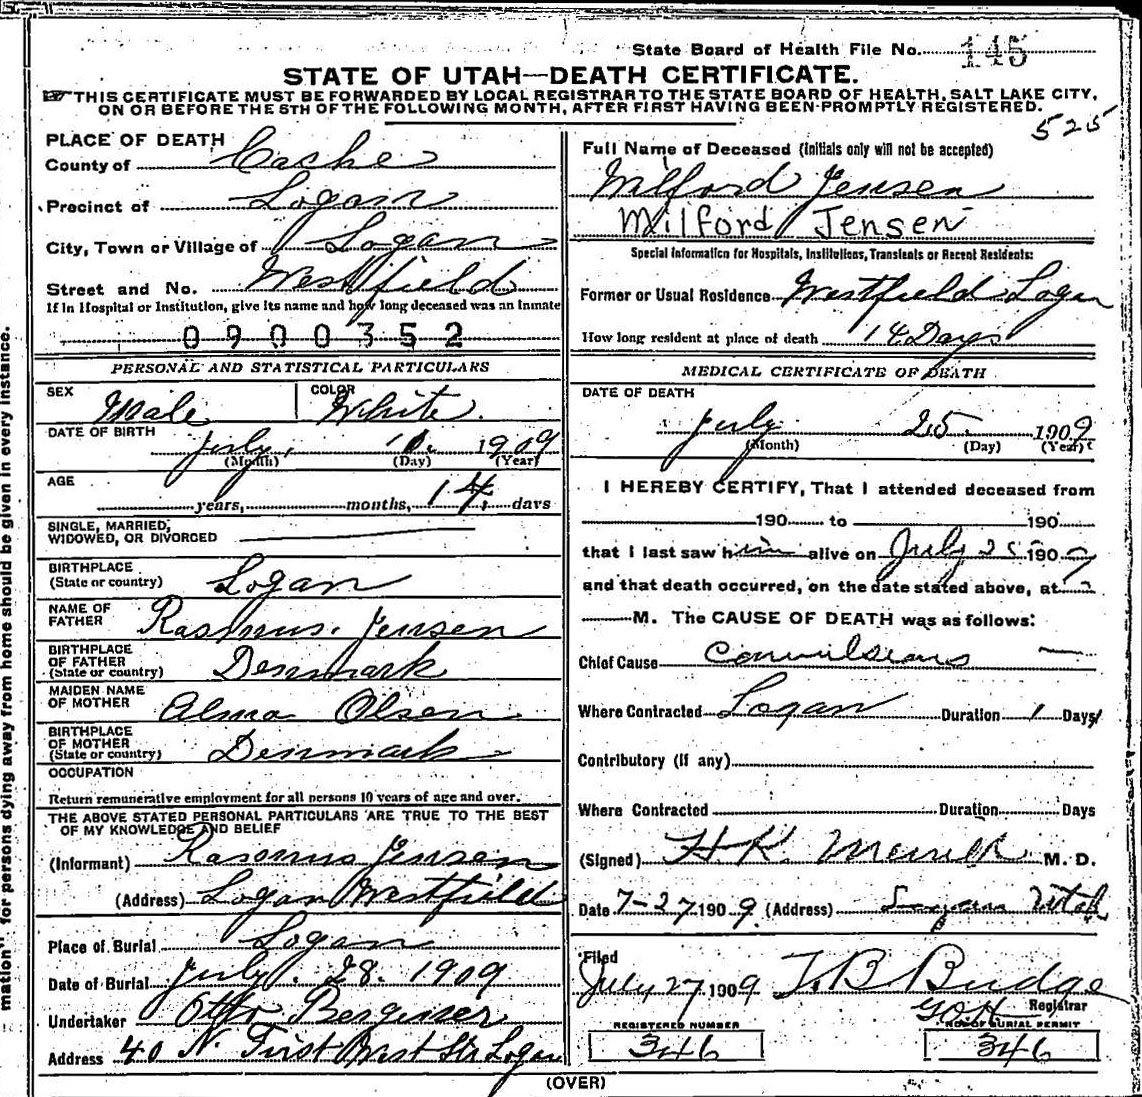 State Board of Health File No. 145
STATE OF UTAH—DEATH CERTIFICATE.
THIS CERTIFICATE MUST BE FORWARDED BY LOCAL REGISTRAR TO THE STATE BOARD OF HEALTH, SALT LAKE CITY,
ON OR BEFORE THE 5TH OF THE FOLLOWING MONTH, AFTER FIRST HAVING BEEN PROMPTLY REGISTERED.
525
PLACE OF DEATH
County of Cache
Precinct of Logan
City, Town or Village of Logan
Street and No. Westfield
If in Hospital or Institution, give its name and how long deceased was an inmate
0900352
PERSONAL AND STATISTICAL PARTICULARS
SEX Male COLOR White.
DATE OF BIRTH July, 1909
(Month) (Day) (Year)
AGE years, months, 14 days
SINGLE, MARRIED,
WIDOWED, OR DIVORCED
BIRTHPLACE
(State or country) Logan
NAME OF
FATHER Rasmus. Jensen
BIRTHPLACE
OF FATHER
(State or country) Denmark
MAIDEN NAME
OF MOTHER Alma Olsen
BIRTHPLACE
OF MOTHER
(State or country) Denmark
OCCUPATION
Return remunerative employment for all persons 10 years of age and over.
THE ABOVE STATED PERSONAL PARTICULARS ARE TRUE TO THE BEST
OF MY KNOWLEDGE AND BELIEF
(Informant) Rasmus Jensen
(Address) Logan Westfield
Place of Burial Logan
Date of Burial July. 28. 1909
Undertaker Otto
Address 40 N. First West Str Logan
Full Name of Deceased (Initials only will not be accepted)
Milford Jensen
Milford Jensen
Special Information for Hospitals, Institutions, Transients or Recent Residents:
Former or Usual Residence Westfield Logan
How long resident at place of death 14 Days
MEDICAL CERTIFICATE OF DEATH
DATE OF DEATH
July 25. 1909
(Month) (Day) (Year)
I HEREBY CERTIFY, That I attended deceased from
190 to 190
that I last saw him alive on July 25 1909
and that death occurred, on the date stated above, at 2
M. The CAUSE OF DEATH was as follows:
Chief Cause Convulsions
Where Contracted Logan Duration 1 Days
Contributory (if any)
Where Contracted Duration Days
(Signed) H. K. Merrill M. D.
Date 7-27 1909. (Address) Logan Utah
Filed
July 27 1909 T. B. Budge
Registrar
REGISTERED NUMBER
346
NO. OF BURIAL PERMIT
346
(OVER)
mation" for persons dying away from home should be given in every instance.